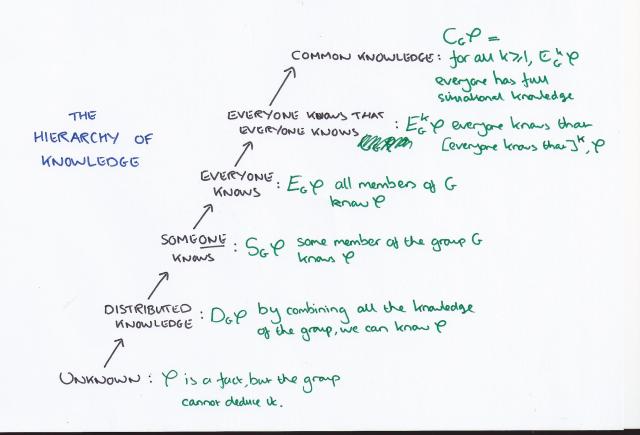 THE
HIERARCHY OF
KNOWLEDGE
COMMON KNOWLEDGE : C_G φ =
for all k≥1, E_G^k φ
everyone has full
situational knowledge
EVERYONE KNOWS THAT
EVERYONE KNOWS : E_G^k φ everyone knows that
[everyone knows that]^k, φ
EVERYONE
KNOWS : E_G φ all members of G
know φ
SOMEONE
KNOWS : S_G φ some member of the group G
knows φ
DISTRIBUTED
KNOWLEDGE : D_G φ by combining all the knowledge
of the group, we can know φ
UNKNOWN : φ is a fact, but the group
cannot deduce it.